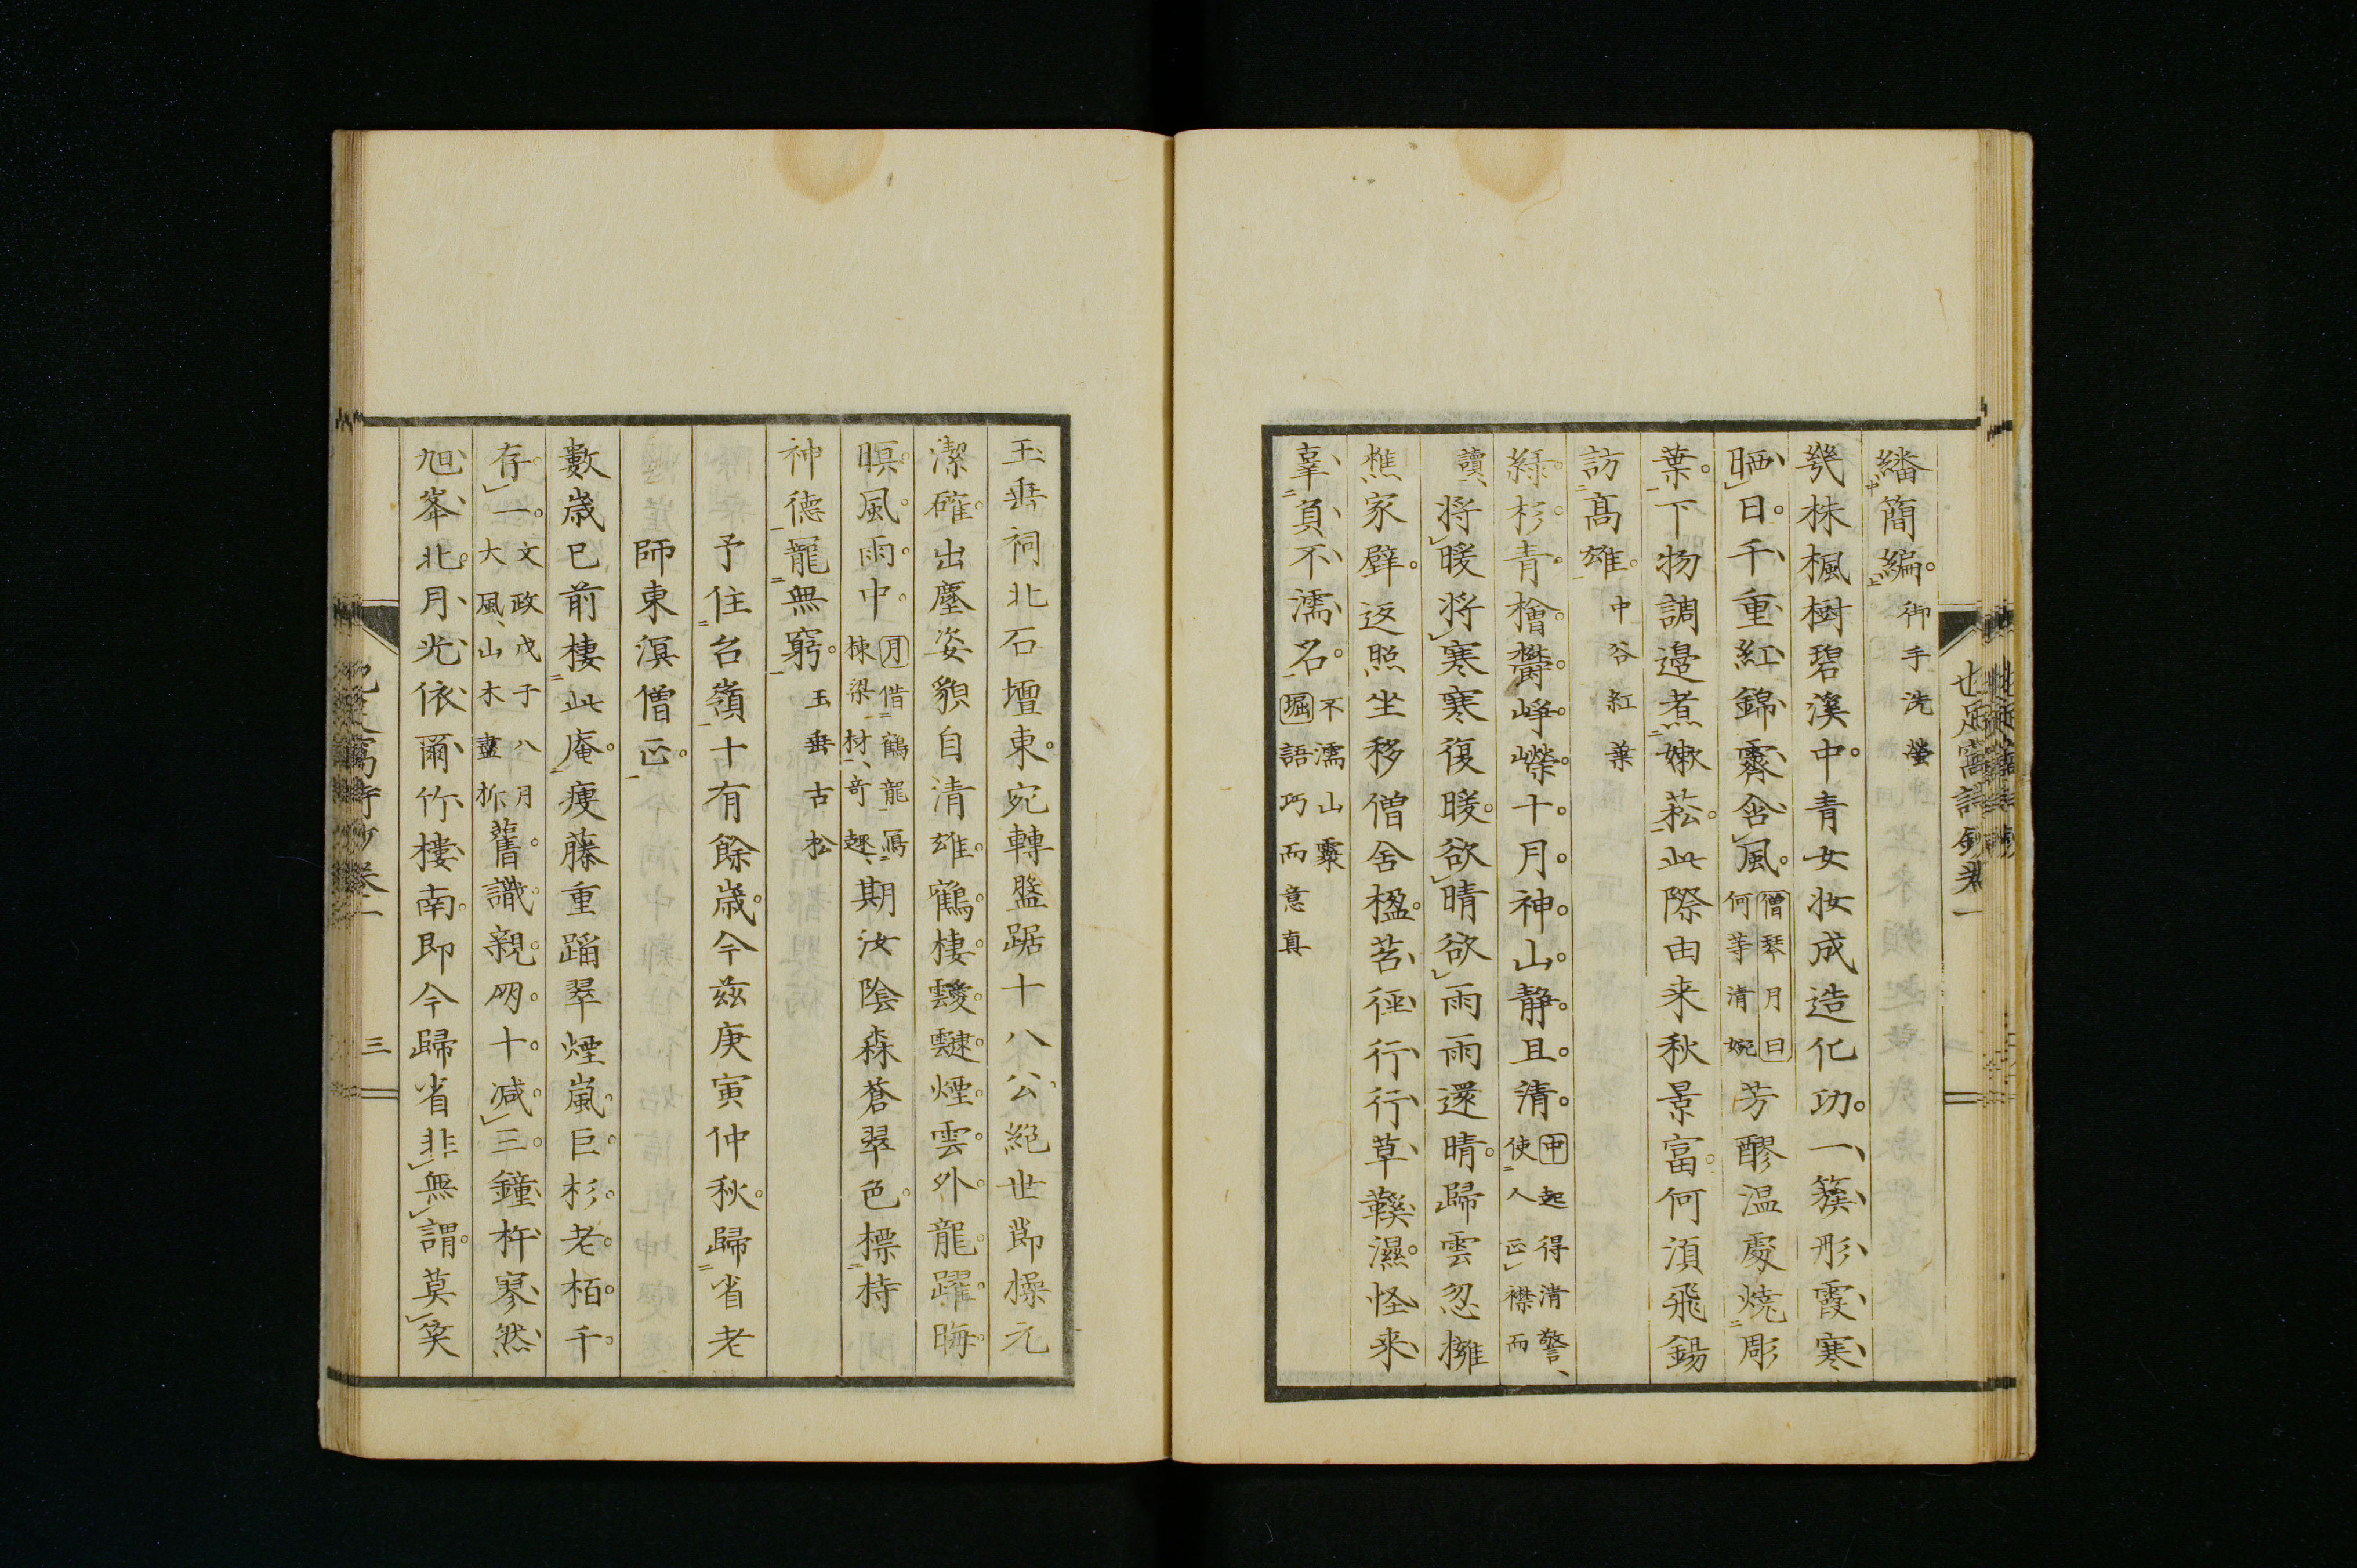 也足窩詩鈔卷一
繙簡編御手洗螢
幾株楓樹碧溪中青女妝成造化功一簇彤霞寒
晒日千重紅錦霽含風僧琴月曰何等清婉芳醪温處燒彫
葉下物調邉煮嫩菘此際由来秋景富何湏飛錫
訪髙雄中谷紅葉
緑杉青檜欝崢嶸十月神山静且清中起得清警、使人正襟而
讀、將暖將寒寒復暖欲晴欲雨雨還晴歸雲忽擁
樵家壁返照坐移僧舍楹苔徑行行草鞵濕怪来
辜負不濡名不濡山靈堀語巧而意真
玉垂祠北石壇東宛轉盤踞十八公絕世節操元
潔確出塵姿貌自清雄鶴棲靉靆煙雲外龍躍晦
暝風雨中月借鶴龍寫棟梁材、奇趣、期汝陰森蒼翠色標持
神德寵無窮玉垂古松
予住台嶺十有餘歳今玆庚寅仲秋歸省老
師東溟僧正
數歳已前棲此庵痩藤重蹈翠煙嵐巨杉老栢千
存一文政戊子八月大風、山木盡折舊識親朋十减三鐘杵寥然
旭峯北月光依爾竹樓南即今歸省非無謂莫笑
三